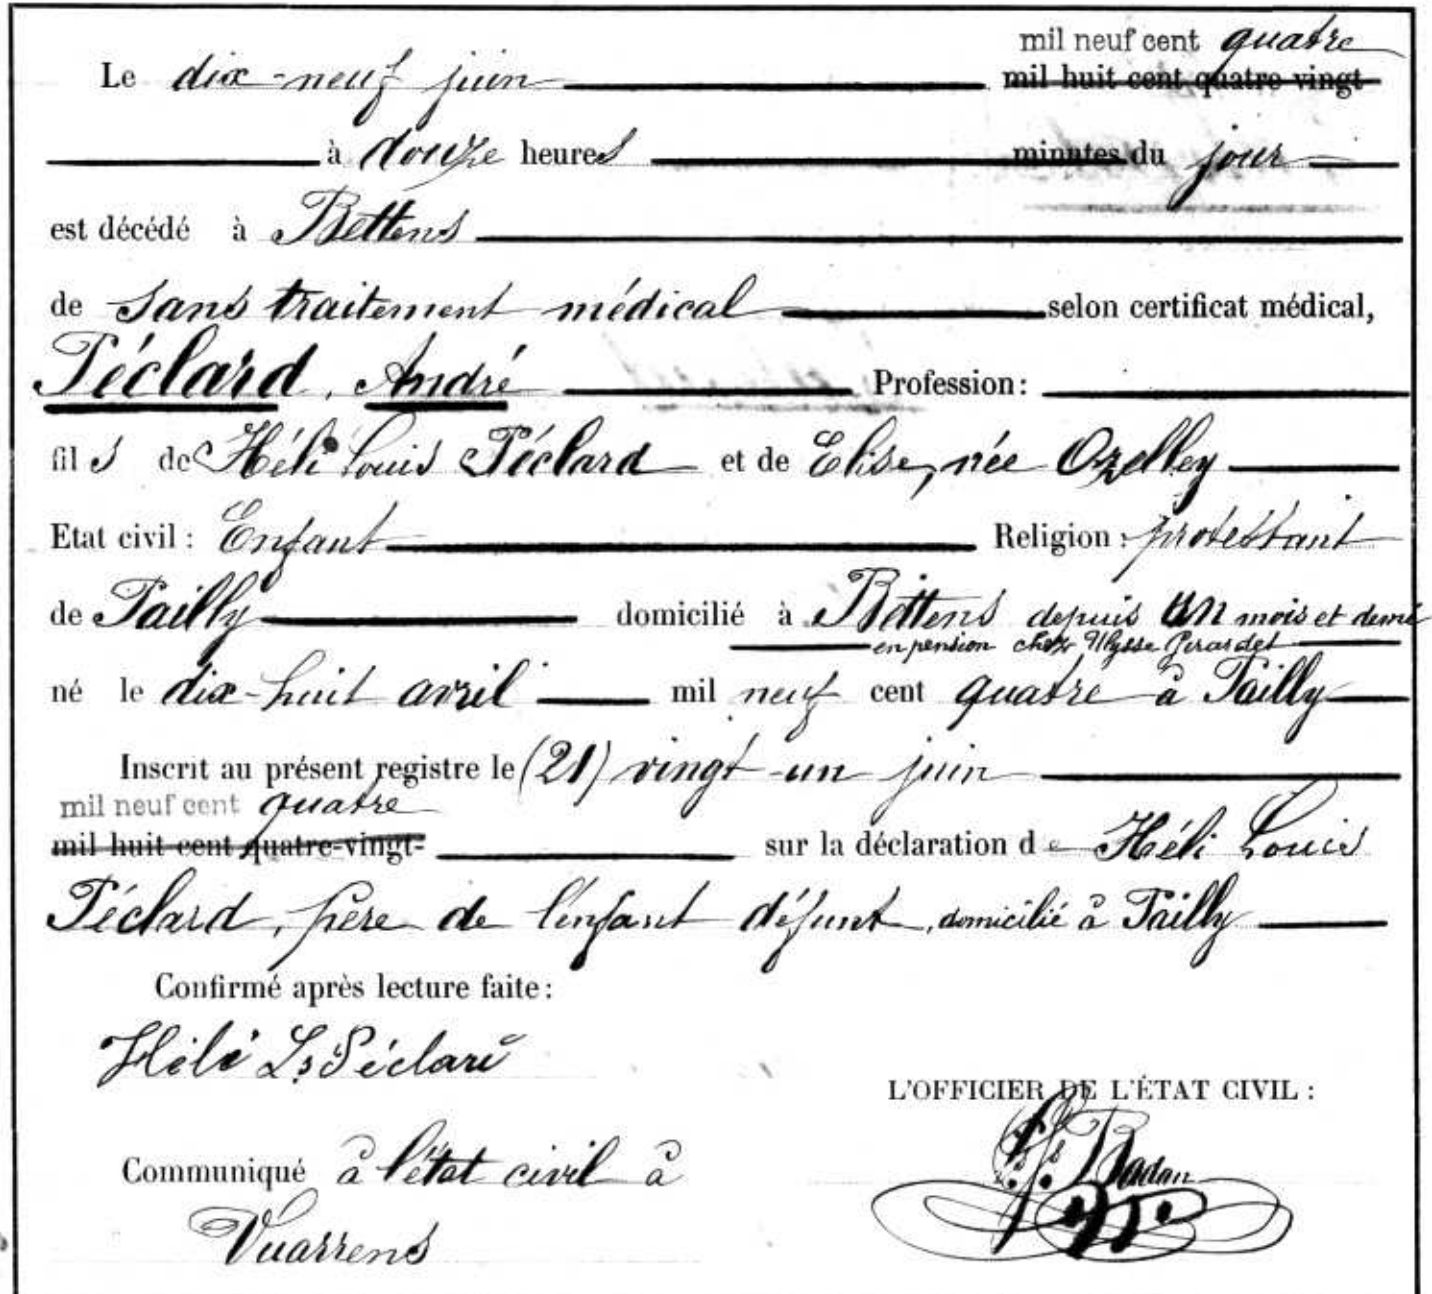 mil neuf cent quatre
Le dix-neuf juin mil huit cent quatre-vingt
à douze heures minutes du jour
est décédé à Bettens
de sans traitement médical selon certificat médical,
Péclard, André Profession:
fils de Héli Louis Péclard et de Elise, née Ozelley
Etat civil: Enfant Religion: protestant
de Pailly domicilié à Bettens depuis un mois et demi
en pension chez Ulysse Perardet
né le dix-huit avril mil neuf cent quatre à Pailly
Inscrit au présent registre le (21) vingt-un juin
mil neuf cent quatre
mil huit cent quatre-vingt- sur la déclaration de Héli Louis
Péclard, père de l'enfant défunt, domicilié à Pailly
Confirmé après lecture faite:
Héli Ls Péclard
L'OFFICIER DE L'ÉTAT CIVIL:
Badan
Communiqué à l'état civil à
Vuarrens